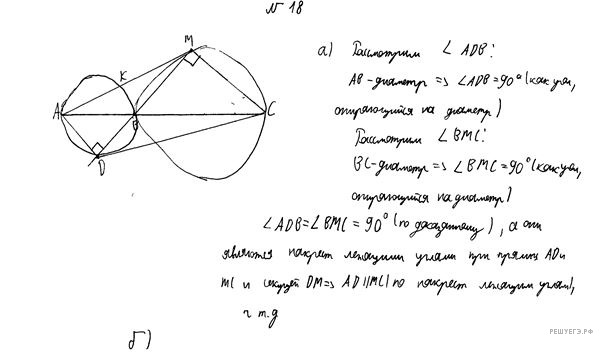 № 18
а) Рассмотрим ∠ ADB:
AB-диаметр => ∠ADB=90° (как угол,
опирающийся на диаметр)
Рассмотрим ∠ BMC:
BC-диаметр => ∠BMC=90° (как угол,
опирающийся на диаметр)
∠ADB=∠BMC = 90° (по доказанному), а они
являются накрест лежащими углами при прямых AD и
MC и секущей DM => AD||MC (по накрест лежащим углам),
ч т.д
б)
M
K
A
B
C
D
РЕШУЕГЭ.РФ